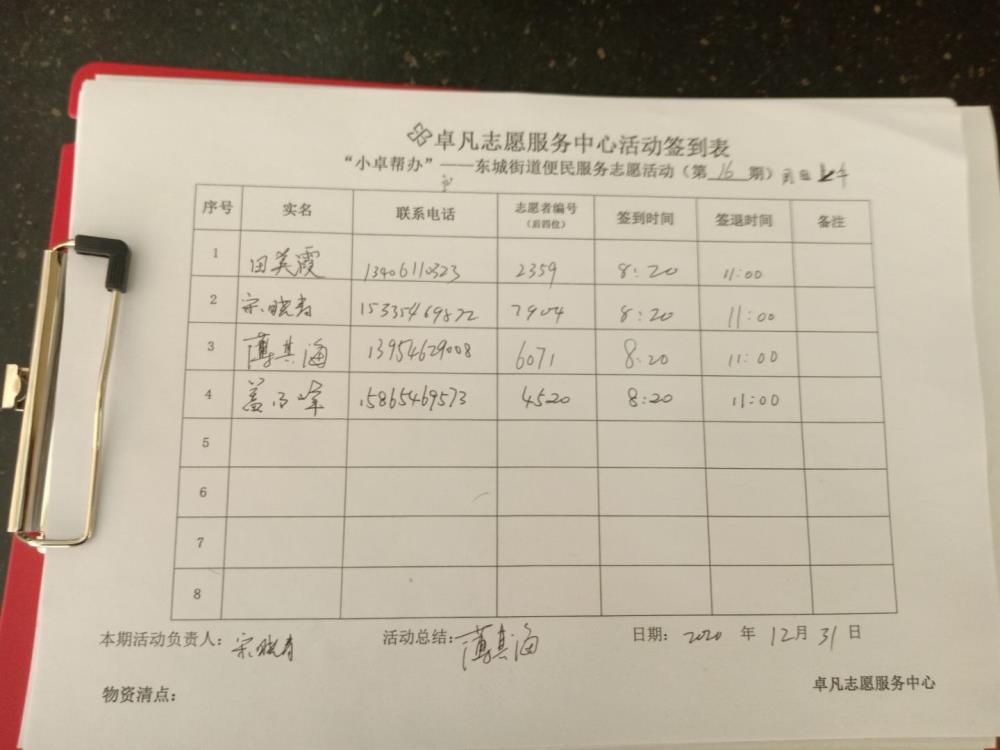 卓凡志愿服务中心活动签到表
“小卓帮办”——东城街道便民服务志愿活动（第 16 期）
序号 实名 联系电话 志愿者编号（后四位） 签到时间 签退时间 备注
1 田英霞 13406110323 2359 8:20 11:00
2 宋晓青 15335469822 7904 8:20 11:00
3 薄其海 13954629008 6071 8:20 11:00
4 盖 峰 15865469573 4520 8:20 11:00
5
6
7
8
本期活动负责人：宋晓青 活动总结：薄其海 日期：2020 年 12月 31 日
物资清点： 卓凡志愿服务中心